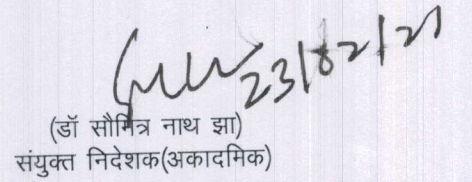 23/02/21
(डॉ सौमित्र नाथ झा)
संयुक्त निदेशक(अकादमिक)